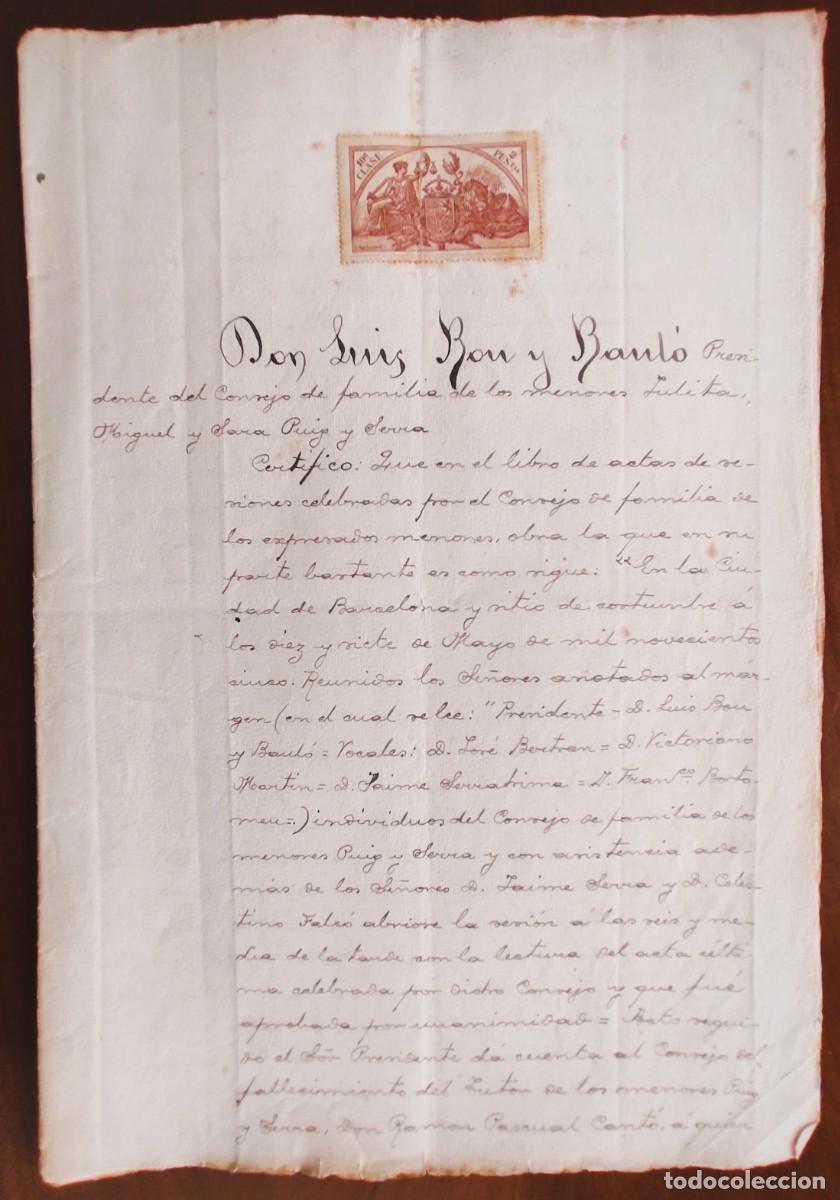 10ª CLASE 2 PESTAS
Don Luis Bou y Bauló Presi-
dente del Consejo de familia de los menores Julita,
Miguel y Sara Puig y Serra
Certifico: Que en el libro de actas de se-
siones celebradas por el Consejo de familia de
los expresados menores, obra la que en su
parte bastante es como sigue: "En la Ciu-
dad de Barcelona y sitio de costumbre á
los diez y siete de Mayo de mil novecientos
cinco. Reunidos los Señores anotados al már-
gen (en el cual se lee: "Presidente - D. Luis Bou
y Bauló = Vocales: D. José Bertran = D. Victoriano
Martin = D. Jaime Serratrima = D. Franco. Borto-
meu =.) individuos del Consejo de familia de los
menores Puig y Serra y con asistencia ade-
más de los Señores D. Jaime Serra y D. Celes-
tino Falcó abriose la sesión á las seis y me-
dia de la tarde con la lectura del acta últi-
ma celebrada por dicho Consejo y que fué
aprobada por unanimidad = Acto segui-
do el Sor Presidente dá cuenta al Consejo del
fallecimiento del Tutor de los menores Puig
y Serra, Don Ramon Pascual Cantó, á quien
todocoleccion